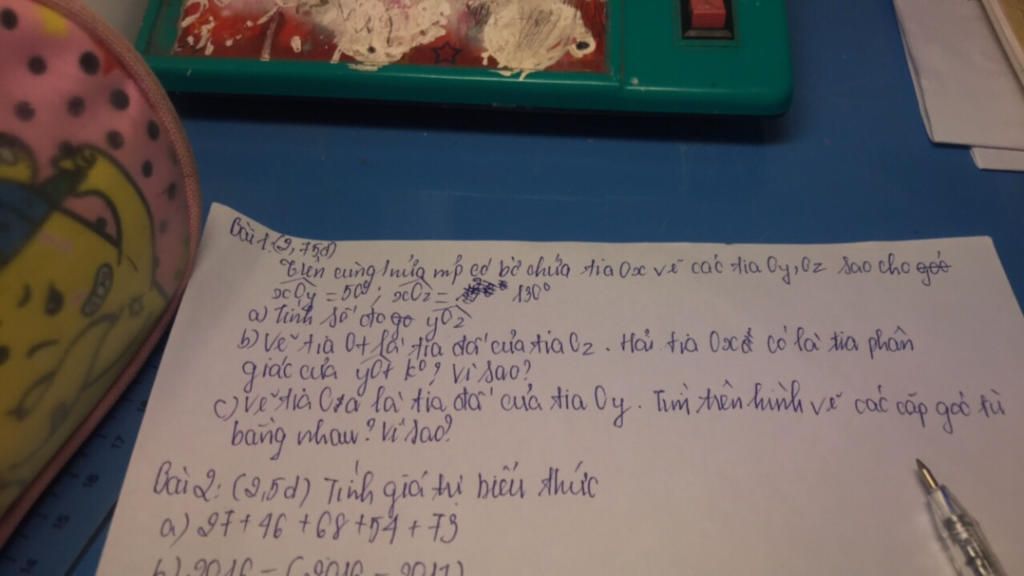 Bài 1: (2,75đ)
Trên cùng 1 nửa mp có bờ chứa tia Ox vẽ các tia Oy, Oz sao cho góc
xOy = 50°; xOz = 130°
a) Tính số đo go yOz
b) Vẽ tia Ot là tia đối của tia Oz. Hỏi tia Ox có là tia phân
giác của yOt ko? Vì sao?
c) Vẽ tia Oa là tia đối của tia Oy. Tìm trên hình vẽ các cặp góc tù
bằng nhau? Vì sao?
Bài 2: (2,5đ) Tính giá trị biểu thức
a) 27 + 46 + 68 + 54 + 73
b) 2016 - (2016 - 2017)
17
16
15
14